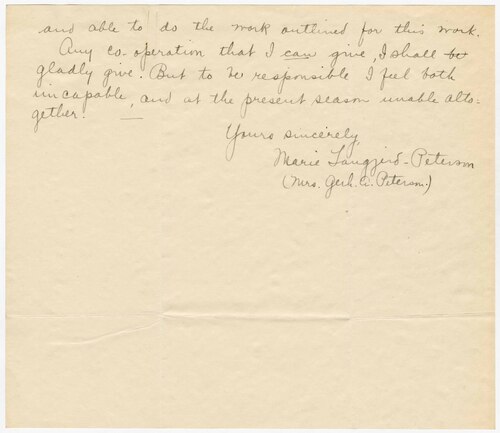 and able to do the work outlined for this work.
Any co-operation that I can give, I shall be
gladly give. But to be responsible I feel both
incapable, and at the present season unable alto-
gether.
Yours sincerely,
Marie Langjerd-Peterson
(Mrs. Gerh. A. Peterson.)